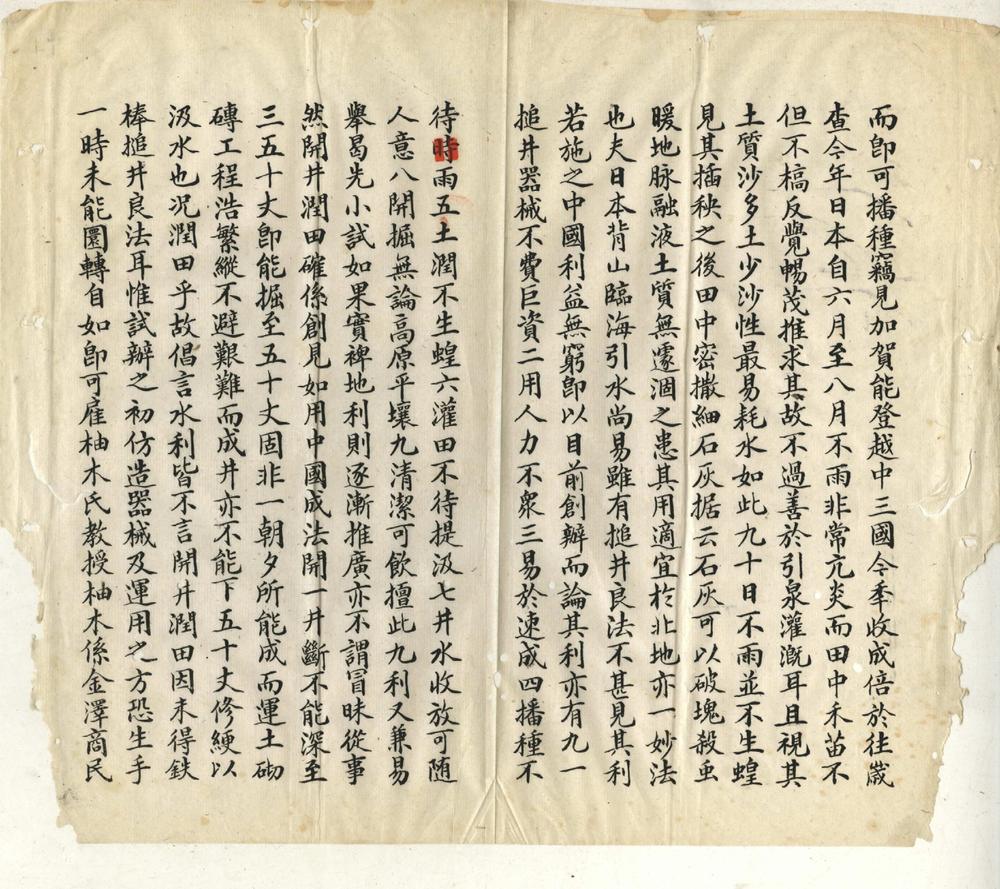 而卽可播種竊見加賀能登越中三國今季收成倍於往歲
查今年日本自六月至八月不雨非常亢炎而田中禾苗不
但不槁反覺暢茂推求其故不過善於引泉灌溉耳且視其
土質沙多土少沙性最易耗水如此九十日不雨並不生蝗
見其插秧之後田中密撒細石灰据云石灰可以破塊殺虫
暖地脉融液土質無遽涸之患其用適宜於北地亦一妙法
也夫日本背山臨海引水尚易雖有搥井良法不甚見其利
若施之中國利益無窮卽以目前創辦而論其利亦有九一
搥井器械不費巨資二用人力不衆三易於速成四播種不
待時雨五土潤不生蝗六灌田不待提汲七井水收放可随
人意八開掘無論高原平壤九清潔可飲擅此九利又兼易
舉曷先小試如果實裨地利則逐漸推廣亦不謂冒昧從事
然開井潤田確係創見如用中國成法開一井斷不能深至
三五十丈卽能掘至五十丈固非一朝夕所能成而運土砌
磚工程浩繁縱不避艱難而成井亦不能下五十丈修綆以
汲水也况潤田乎故倡言水利皆不言開井潤田因未得鉄
棒搥井良法耳惟試辦之初仿造器械及運用之方恐生手
一時未能圜轉自如卽可雇柚木氏教授柚木係金澤商民